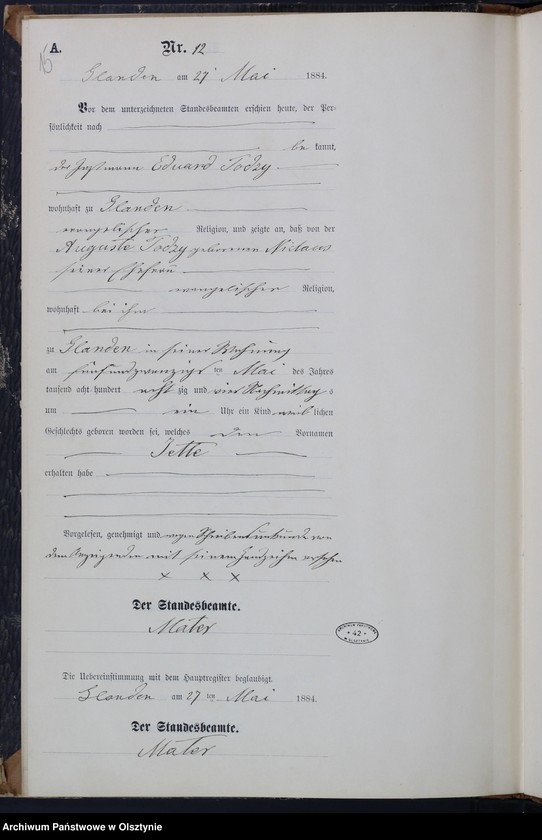 A.
Nr. 12
15
Glanden am 27 Mai 1884.
Vor dem unterzeichneten Standesbeamten erschien heute, der Per-
sönlichkeit nach
be kannt,
der Instmann Eduard Todzy
wohnhaft zu Glanden
evangelischer Religion, und zeigte an, daß von der
Auguste Todzy geborenen Niclaus
seiner Ehefrau
evangelischer Religion,
wohnhaft bei ihm
zu Glanden in seiner Wohnung
am fünfundzwanzigsten ten Mai des Jahres
tausend acht hundert acht zig und vier Nachmittags
um ein Uhr ein Kind weib lichen
Geschlechts geboren worden sei, welches den Vornamen
Jette
erhalten habe
Vorgelesen, genehmigt und wegen Schreibensunkunde von
dem Anzeigenden mit seinem Handzeichen versehen
× × ×
Der Standesbeamte.
Mater
ARCHIWUM PAŃSTWOWE
• 42 •
W OLSZTYNIE
Die Uebereinstimmung mit dem Hauptregister beglaubigt.
Glanden am 27 ten Mai 1884.
Der Standesbeamte.
Mater
Archiwum Państwowe w Olsztynie